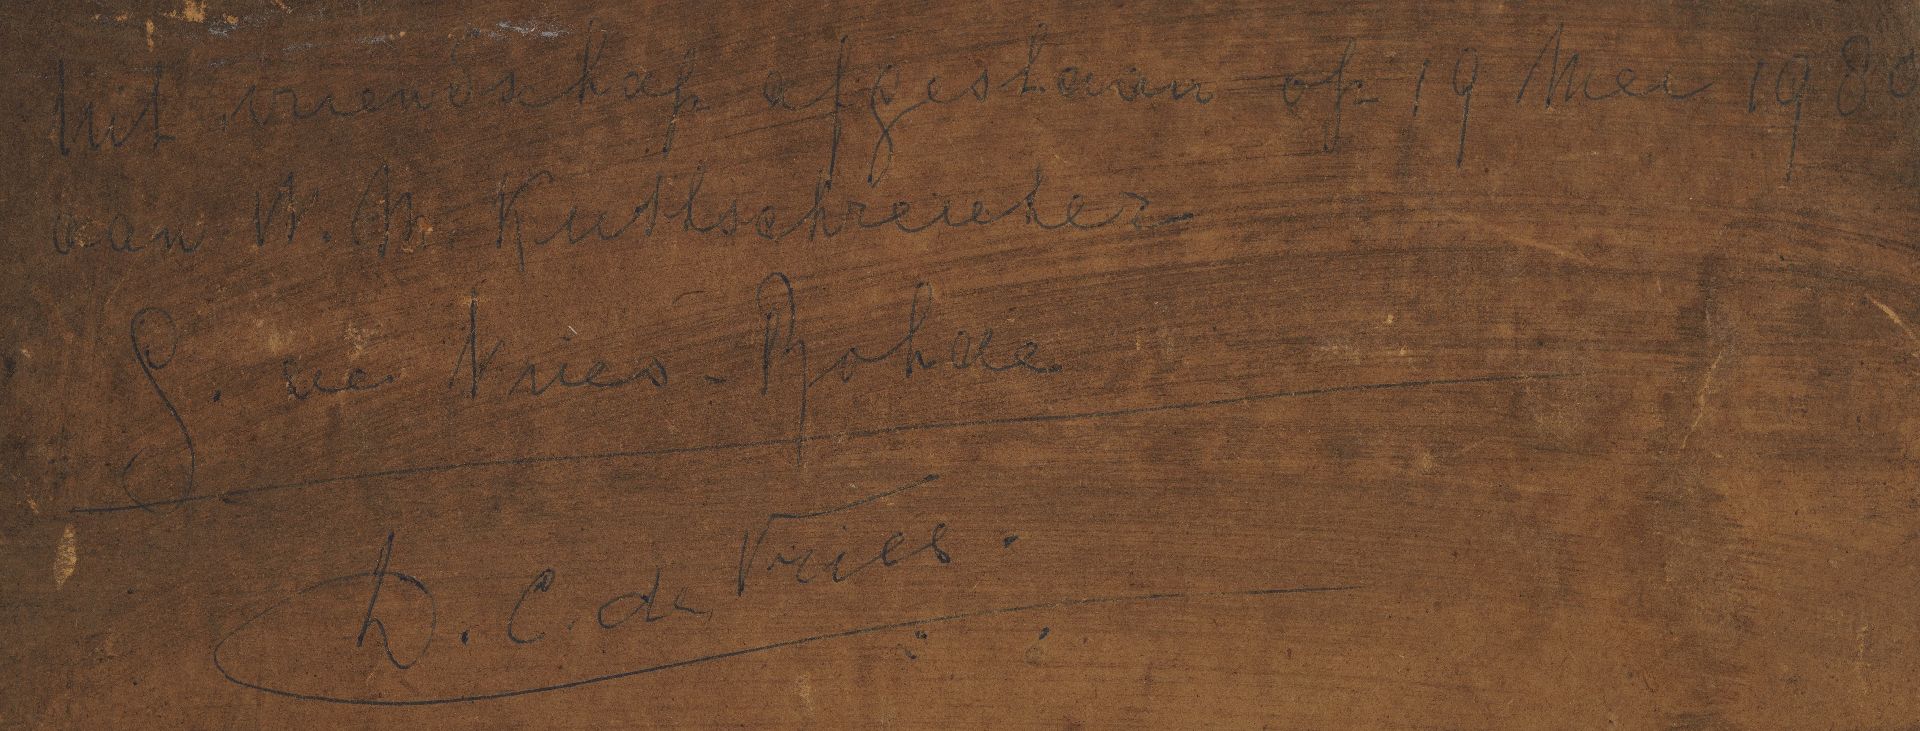 Uit vriendschap afgestaan op 19 Mei 1980
aan W. M. Kuthschreuter
G. de Vries - Rohde
D. C. de Vries.